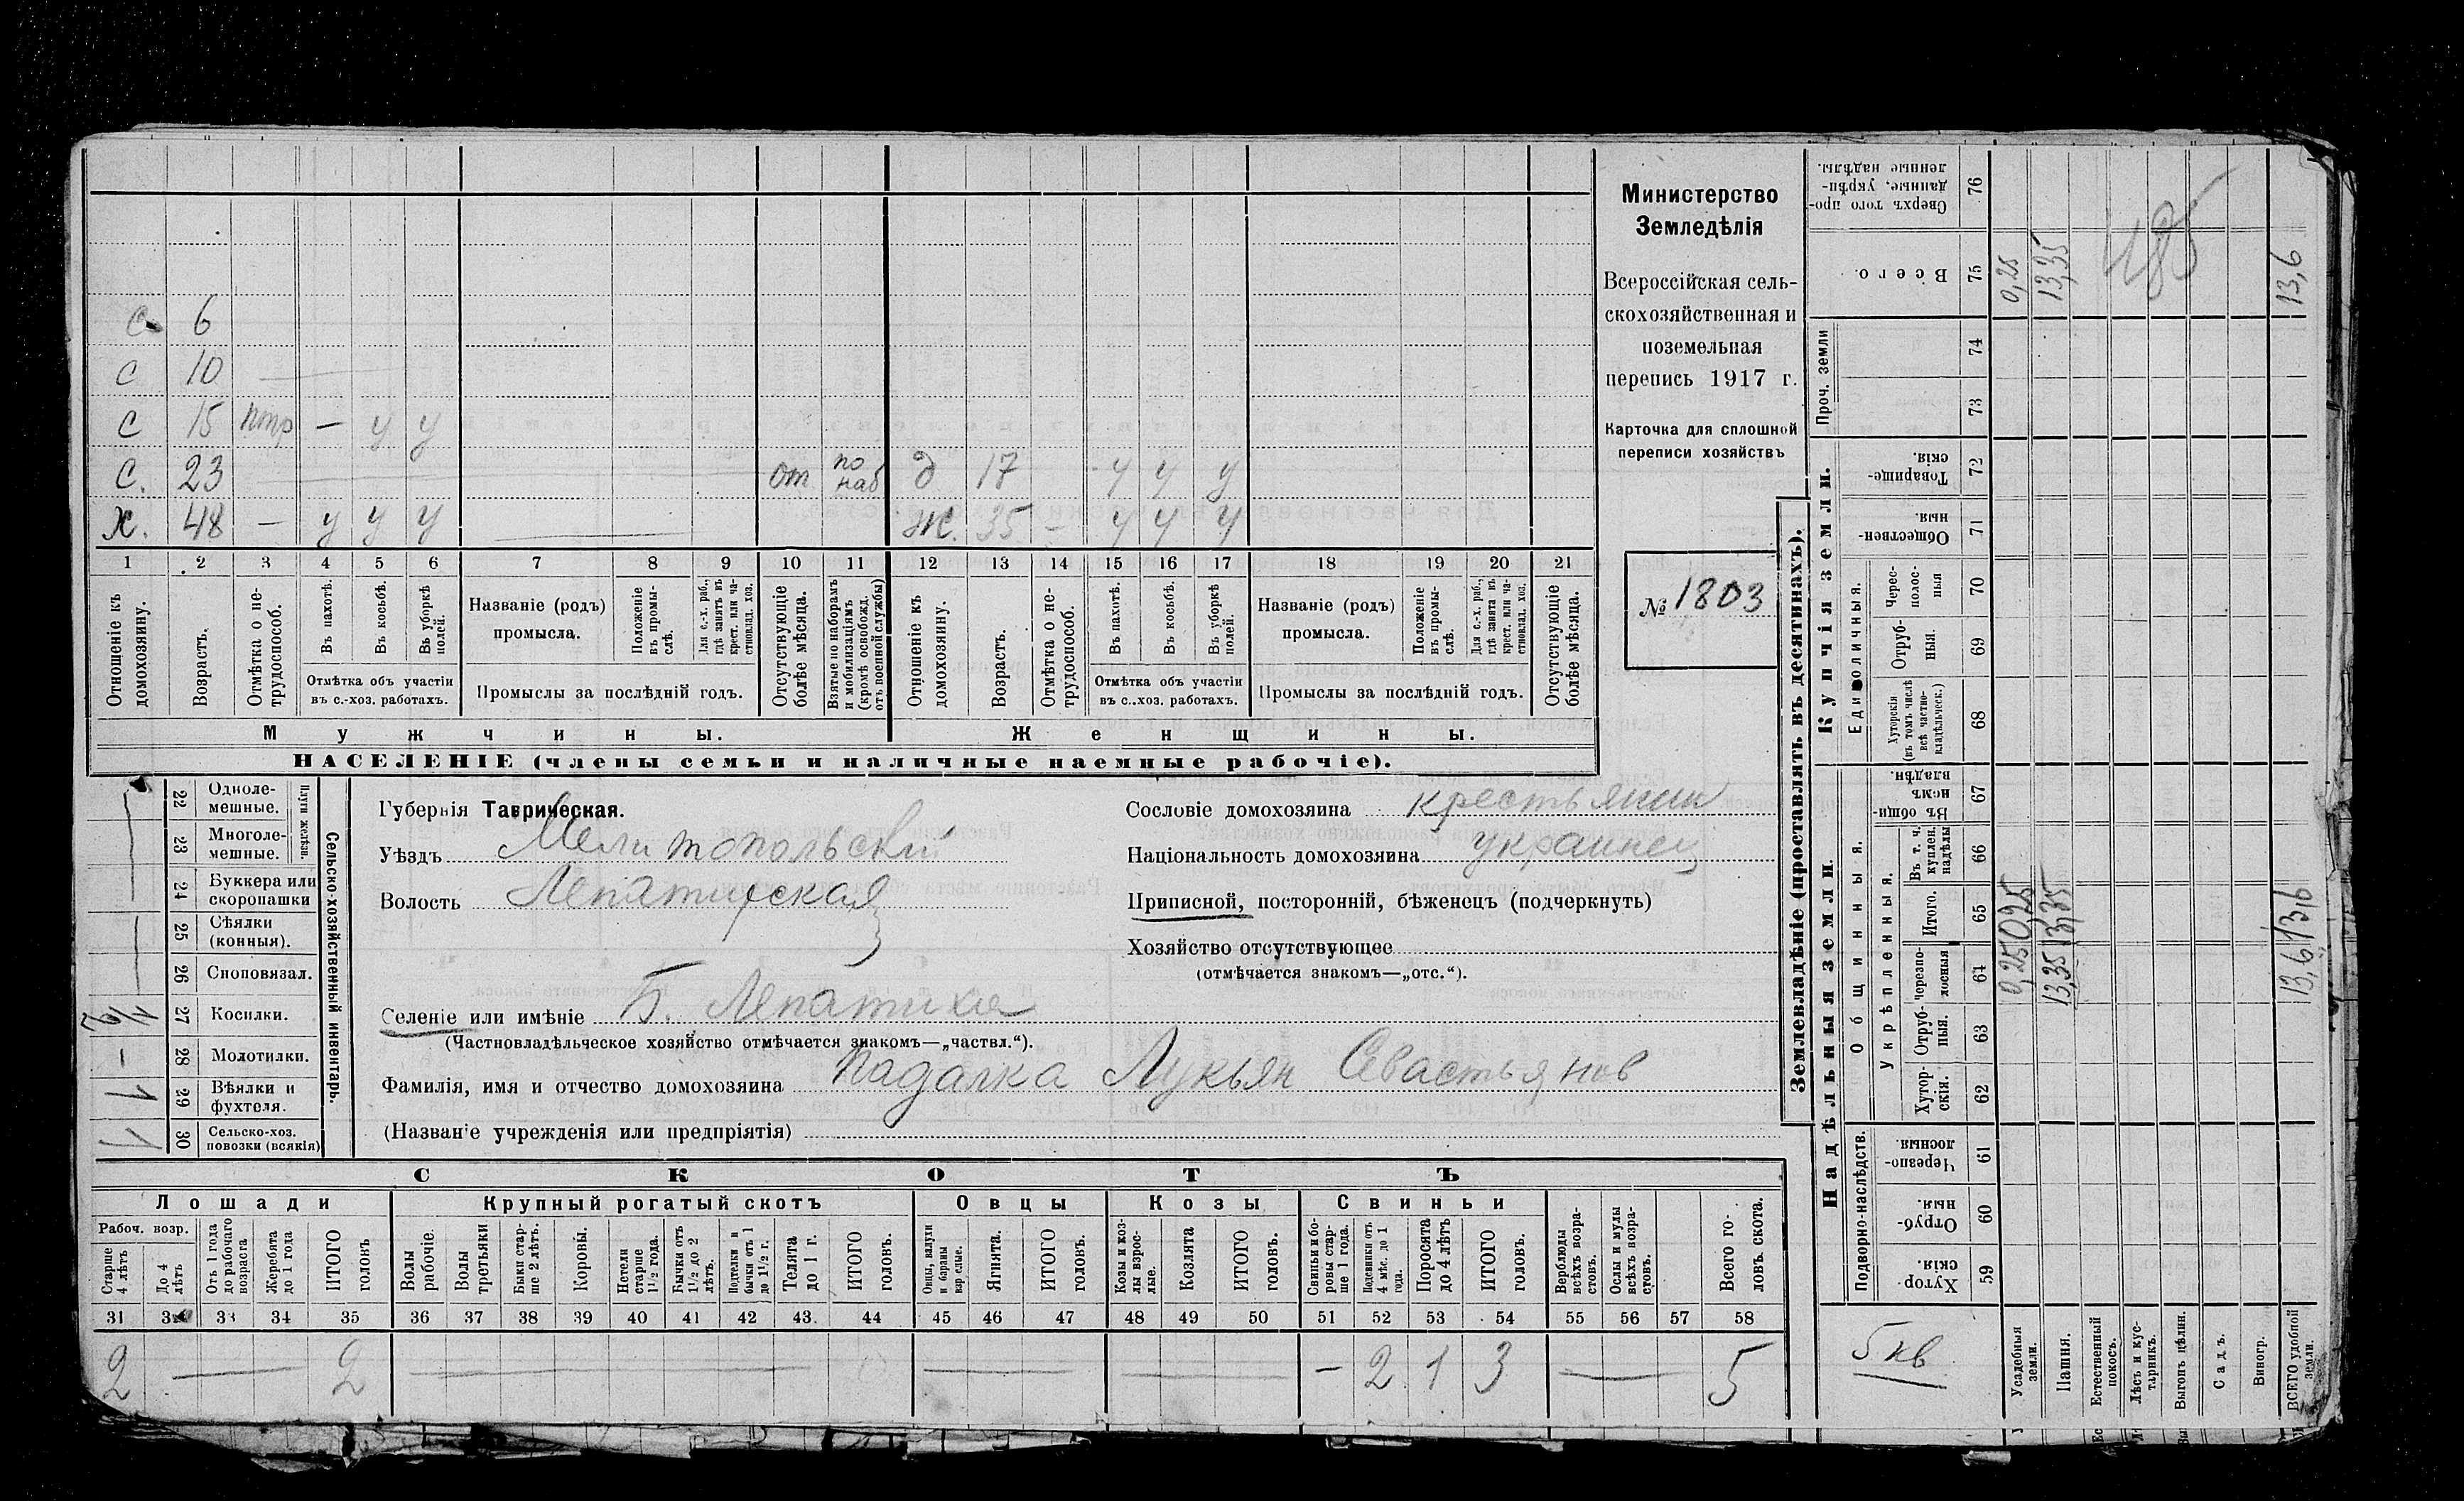 с 6
с 10
с 15 потр — у у
с. 23 от по наб д 17 у у у
х. 48 — у у у ж. 35 — у у у
1 2 3 4 5 6 7 8 9 10 11 12 13 14 15 16 17 18 19 20 21
Отношеніе къ домохозяину.
Возрастъ.
Отмѣтка о нетрудоспособ.
Въ пахотѣ.
Въ косьбѣ.
Въ уборкѣ полей.
Отмѣтка объ участіи въ с.-хоз. работахъ.
Названіе (родъ) промысла.
Положеніе въ промыслѣ.
Для с.-х. раб., гдѣ занятъ въ крест. или частновлад. хоз.
Промыслы за послѣдній годъ.
Отсутствующіе болѣе мѣсяца.
Взятые по наборамъ и мобилизаціямъ (кромѣ освобожд. отъ военной службы)
Отношеніе къ домохозяину.
Возрастъ.
Отмѣтка о нетрудоспособ.
Въ пахотѣ.
Въ косьбѣ.
Въ уборкѣ полей.
Отмѣтка объ участіи въ с.-хоз. работахъ.
Названіе (родъ) промысла.
Положеніе въ промыслѣ.
Для с.-х. раб., гдѣ занята въ крест. или частновлад. хоз.
Промыслы за послѣдній годъ.
Отсутствующіе болѣе мѣсяца.
Мужчины. Женщины.
НАСЕЛЕНІЕ (члены семьи и наличные наемные рабочіе).
Министерство
Земледѣлія
Всероссійская сель-
скохозяйственная и
поземельная
перепись 1917 г.
Карточка для сплошной
переписи хозяйствъ
№ 1803
Сельско-хозяйственный инвентарь.
Плуги желѣзн.
22 Одноле-мешные.
23 Многоле-мешные.
24 Буккера или скоропашки
25 Сѣялки (конныя).
26 Сноповязал.
27 Косилки. 1/2
28 Молотилки. —
29 Вѣялки и фухтеля. 1
30 Сельско-хоз. повозки (всякія) 1
Губернія Таврическая.
Уѣздъ Мелитопольскій
Волость Лепатихская
Селеніе или имѣніе Б. Лепатиха
(Частновладѣльческое хозяйство отмѣчается знакомъ—„частвл.“).
Фамилія, имя и отчество домохозяина Падалка Лукьян Севастьянов
(Названіе учрежденія или предпріятія)
Сословіе домохозяина крестьянин
Національность домохозяина украинец
Приписной, посторонній, бѣженецъ (подчеркнуть)
Хозяйство отсутствующее
(отмѣчается знакомъ—„отс.“).
СКОТЪ
Лошади Крупный рогатый скотъ Овцы Козы Свиньи
Рабоч. возр.
Старше 4 лѣтъ
До 4 лѣтъ
Отъ 1 года до рабочаго возраста
Жеребята до 1 года
ИТОГО головъ
Волы рабочіе.
Волы третьяки
Быки старше 2 лѣтъ.
Коровы.
Нетели старше 1½ года.
Бычки отъ 1½ до 2 лѣтъ.
Подтелки и бычки отъ 1 до 1½ г.
Телята до 1 г.
ИТОГО головъ.
Овцы, валухи и бараны взрослые.
Ягнята.
ИТОГО головъ.
Козы и козлы взрослые.
Козлята
ИТОГО головъ.
Свиньи и боровы старше 1 года.
Подсвинки отъ 4 мѣс. до 1 года.
Поросята до 4 лѣтъ
ИТОГО головъ.
Верблюды всѣхъ возрастовъ.
Ослы и мулы всѣхъ возрастовъ.
Всего головъ скота.
31 32 33 34 35 36 37 38 39 40 41 42 43. 44 45 46 47 48 49 50 51 52 53 54 55 56 57 58
2 — 2 — — — — 2 1 3 — 5
Землевладѣніе (проставлять въ десятинахъ).
Надѣльныя земли. Купчія земли.
Подворно-наслѣдств.
Общинныя.
Укрѣпленныя.
Единоличныя.
Проч. земли
59 Хуторскія.
60 Отрубныя.
61 Черезполосныя.
62 Хуторскія.
63 Отрубныя.
64 Черезполосныя
65 Итого.
66 Въ т. ч. куплен. надѣлы
67 Въ общинномъ владѣн.
68 Хуторскія (въ томъ числѣ всѣ частновладѣльческ.)
69 Отрубныя.
70 Череcполосныя
71 Общественныя.
72 Товарищескія.
73
74
75 Всего.
76 Сверхъ того проданные, укрѣпленные надѣлы.
5 кв
Усадебныя земли. 0,25 0,25 0,25
Пашня. 13,35 13,35 13,35
Естественный покосъ.
Лѣсъ и кустарникъ.
Выгонъ цѣлин.
Садъ.
Виногр.
ВСЕГО удобной земли. 13,6 13,6 13,6
485